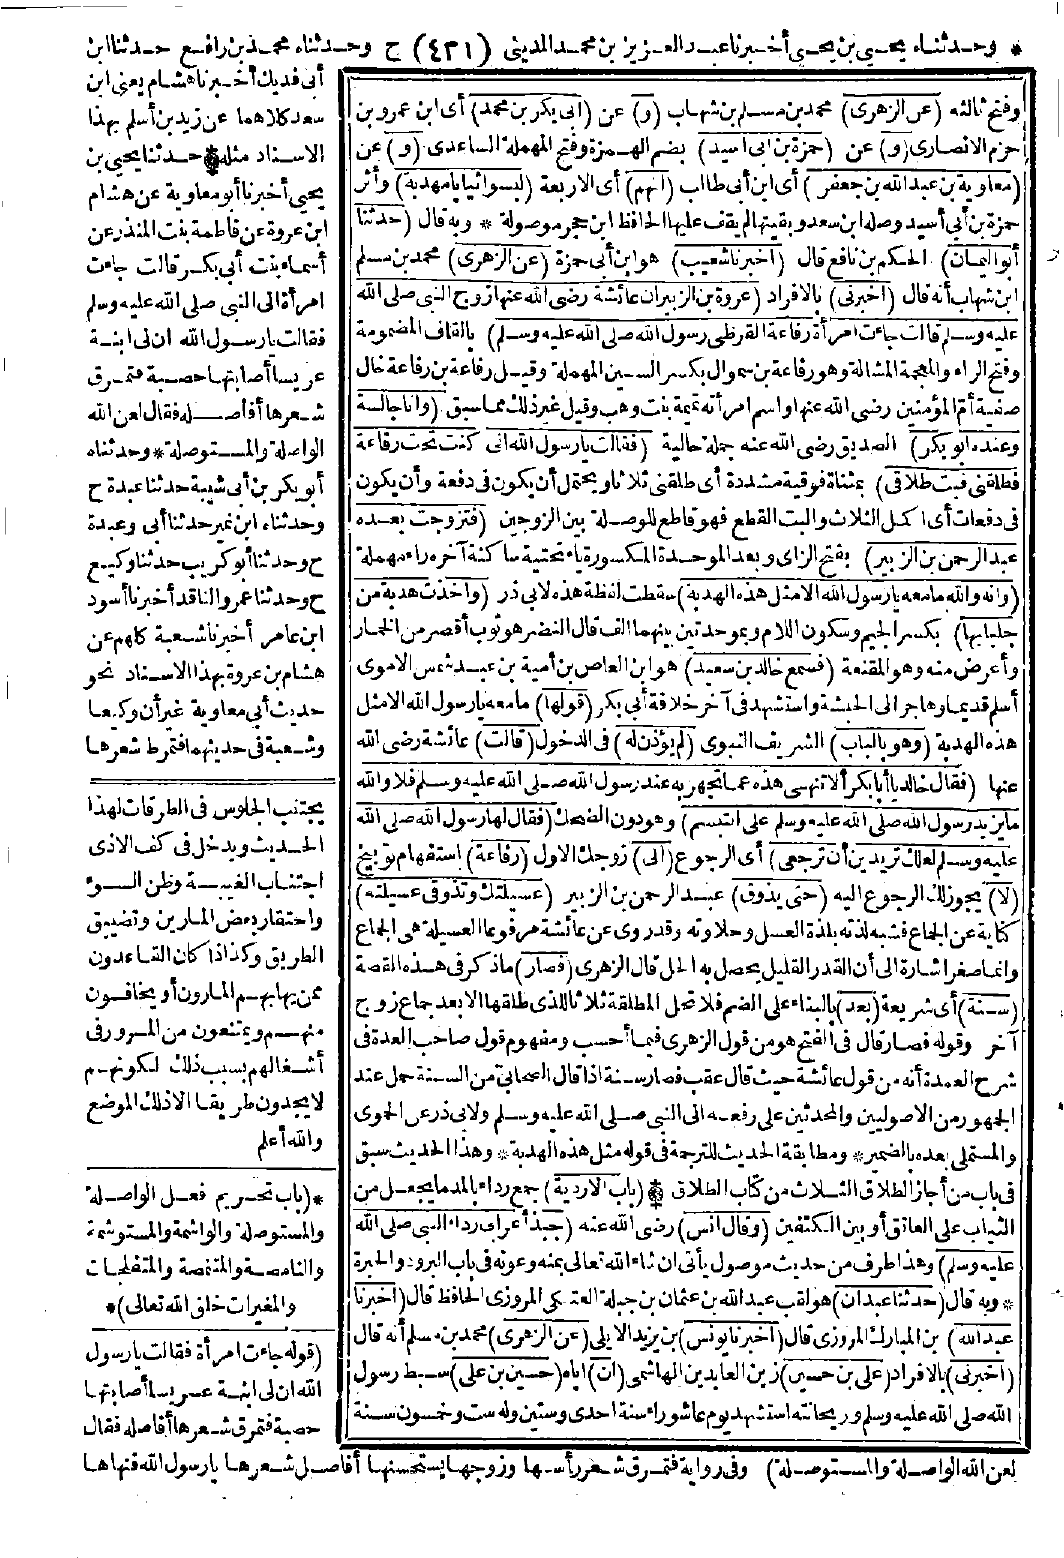 * وحدثناه يحيى بن يحيى أخبرنا عبد العزيز بن محمد المديني (٤٣١) ح وحدثناه محمد بن رافع حدثنا ابن
أبى فديك أخبرنا هشام يعنى ابن
سعد كلاهما عن زيد بن أسلم بهذا
الاسناد مثله * حدثنا يحيى بن
يحيى أخبرنا أبو معاوية عن هشام
ابن عروة عن فاطمة بنت المنذر عن
أسماء بنت أبى بكر قالت جاءت
امرأة الى النبى صلى الله عليه وسلم
فقالت يا رسول الله ان لى ابنة
عريسا أصابتها حصبة فتمرق
شعرها أفأصله فقال لعن الله
الواصلة والمستوصلة * وحدثناه
أبو بكر بن أبى شيبة حدثنا عبدة ح
وحدثناه ابن نمير حدثنا أبى وعبدة
ح وحدثنا أبو كريب حدثنا وكيع
ح وحدثنا عمرو الناقد أخبرنا أسود
ابن عامر أخبرنا شعبة كلهم عن
هشام بن عروة بهذا الاسناد نحو
حديث أبى معاوية غير أن وكيعا
وشعبة فى حديثهما فتمرط شعرها
يجتنب الجلوس فى الطرقات لهذا
الحديث ويدخل فى كف الاذى
اجتناب الغيبة وظن السوء
واحتقار بعض المارين وتضييق
الطريق وكذا اذا كان القاعدون
ممن يهابهم المارون أو يخافون
منهم ويمتنعون من المرور فى
أشغالهم بسبب ذلك لكونهم
لا يجدون طريقا الا ذلك الموضع
والله أعلم
*(باب تحريم فعل الواصلة
والمستوصلة والواشمة والمستوشمة
والنامصة والمتنمصة والمتفلجات
والمغيرات خلق الله تعالى)*
(قوله جاءت امرأة فقالت يا رسول
الله ان لى ابنة عريسا أصابتها
حصبة فتمرق شعرها أفأصله فقال
لعن الله الواصلة والمستوصلة) وفى رواية فتمرق شعر رأسها وزوجها يستحسنها أفأصل شعرها يا رسول الله فنهاها
وفتح ثالثه (عن الزهرى) محمد بن مسلم بن شهاب (و) عن (أبى بكر بن محمد) أى ابن عمرو بن
حزم الانصارى (و) عن (حمزة بن أبى أسيد) بضم الهمزة وفتح المهملة الساعدى (و) عن
(معاوية بن عبد الله بن جعفر) أى ابن أبى طالب (انهم) أى الاربعة (لبسوا ثيابا مهدبة) وأثر
حمزة بن أبى أسيد وصله ابن سعد وبقيتها لم يقف عليها الحافظ ابن حجر موصولة * وبه قال (حدثنا
أبو اليمان) الحكم بن نافع قال (أخبرنا شعيب) هو ابن أبى حمزة (عن الزهرى) محمد بن مسلم
ابن شهاب أنه قال (أخبرنى) بالافراد (عروة بن الزبير ان عائشة رضى الله عنها زوج النبى صلى الله
عليه وسلم قالت جاءت امرأة رفاعة القرظى رسول الله صلى الله عليه وسلم) بالقاف المضمومة
وفتح الراء والمعجمة المشالة وهو رفاعة بن سموال بكسر السين المهملة وقيل رفاعة بن رفاعة خال
صفية أم المؤمنين رضى الله عنها واسم امرأته تميمة بنت وهب وقيل غير ذلك مما سبق (وأنا جالسة
وعنده أبو بكر) الصديق رضى الله عنه جملة حالية (فقالت يا رسول الله انى كنت تحت رفاعة
فطلقنى فبت طلاقى) بمثناة فوقية مشددة أى طلقنى ثلاثا ويحتمل أن يكون فى دفعة وأن يكون
فى دفعات أى اكمل الثلاث والبت القطع فهو قاطع للوصلة بين الزوجين (فتزوجت بعده
عبد الرحمن بن الزبير) بفتح الزاى وبعد الموحدة المكسورة ياء تحتية ساكنة آخره راء مهملة
(وانه والله ما معه يا رسول الله الا مثل هذه الهدبة) سقطت لفظة هذه لابى ذر (وأخذت هدبة من
جلبابها) بكسر الجيم وسكون اللام وبموحدتين بينهما الف قال النضر هو ثوب أقصر من الخمار
وأعرض منه وهو المقنعة (فسمع خالد بن سعيد) هو ابن العاص بن أمية بن عبد شمس الاموى
أسلم قديما وهاجر الى الحبشة واستشهد فى آخر خلافة أبى بكر (قولها) ما معه يا رسول الله الا مثل
هذه الهدبة (وهو بالباب) الشريف النبوى (لم يؤذن له) فى الدخول (قالت) عائشة رضى الله
عنها (فقال خالد يا أبا بكر ألا تنهى هذه عما تجهر به عند رسول الله صلى الله عليه وسلم فلا والله
ما يزيد رسول الله صلى الله عليه وسلم على التبسم) وهو دون الضحك (فقال لها رسول الله صلى الله
عليه وسلم لعلك تريدين أن ترجعى) أى الرجوع (الى) زوجك الاول (رفاعة) استفهام توبيخ
(لا) يجوز لك الرجوع اليه (حتى يذوق) عبد الرحمن بن الزبير (عسيلتك وتذوقى عسيلته)
كناية عن الجماع فشبه لذته بلذة العسل وحلاوته وقد روى عن عائشة مرفوعا العسيلة هى الجماع
وانما صغر اشارة الى أن القدر القليل يحصل به الحل قال الزهرى (فصار) ما ذكر فى هذه القصة
(سنة) أى شريعة (بعد) بالبناء على الضم فلا تحل المطلقة ثلاثا للذى طلقها الا بعد جماع زوج
آخر وقوله فصار قال فى الفتح هو من قول الزهرى فيما أحسب ومفهوم قول صاحب العدة فى
شرح العمدة أنه من قول عائشة حيث قال عقب فصار سنة اذا قال الصحابى من السنة حمل عند
الجمهور من الاصوليين والمحدثين على رفعه الى النبى صلى الله عليه وسلم ولابى ذر عن الحموى
والمستملى بعده بالضمير * ومطابقة الحديث للترجمة فى قوله مثل هذه الهدبة * وهذا الحديث سبق
فى باب من أجاز الطلاق الثلاث من كتاب الطلاق * (باب الاردية) جمع رداء بالمد ما يجعل من
الثياب على العاتق أو بين الكتفين (وقال أنس) رضى الله عنه (جبذ أعرابى رداء النبى صلى الله
عليه وسلم) وهذا طرف من حديث موصول يأتى ان شاء الله تعالى بمنه وعونه فى باب البرود والحبرة
* وبه قال (حدثنا عبدان) هو لقب عبد الله بن عثمان بن جبلة العتكى المروزى الحافظ قال (أخبرنا
عبد الله) بن المبارك المروزى قال (أخبرنا يونس) بن يزيد الايلى (عن الزهرى) محمد بن مسلم أنه قال
(أخبرنى) بالافراد (على بن حسين) زين العابدين الهاشمى (ان) اباه (حسين بن على) سبط رسول
الله صلى الله عليه وسلم وريحانته استشهد يوم عاشوراء سنة احدى وستين وله ست وخمسون سنة